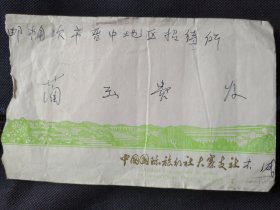 邮榆次市晋中地区招待所
蔺玉贵 收
中国国际旅行社大寨支社